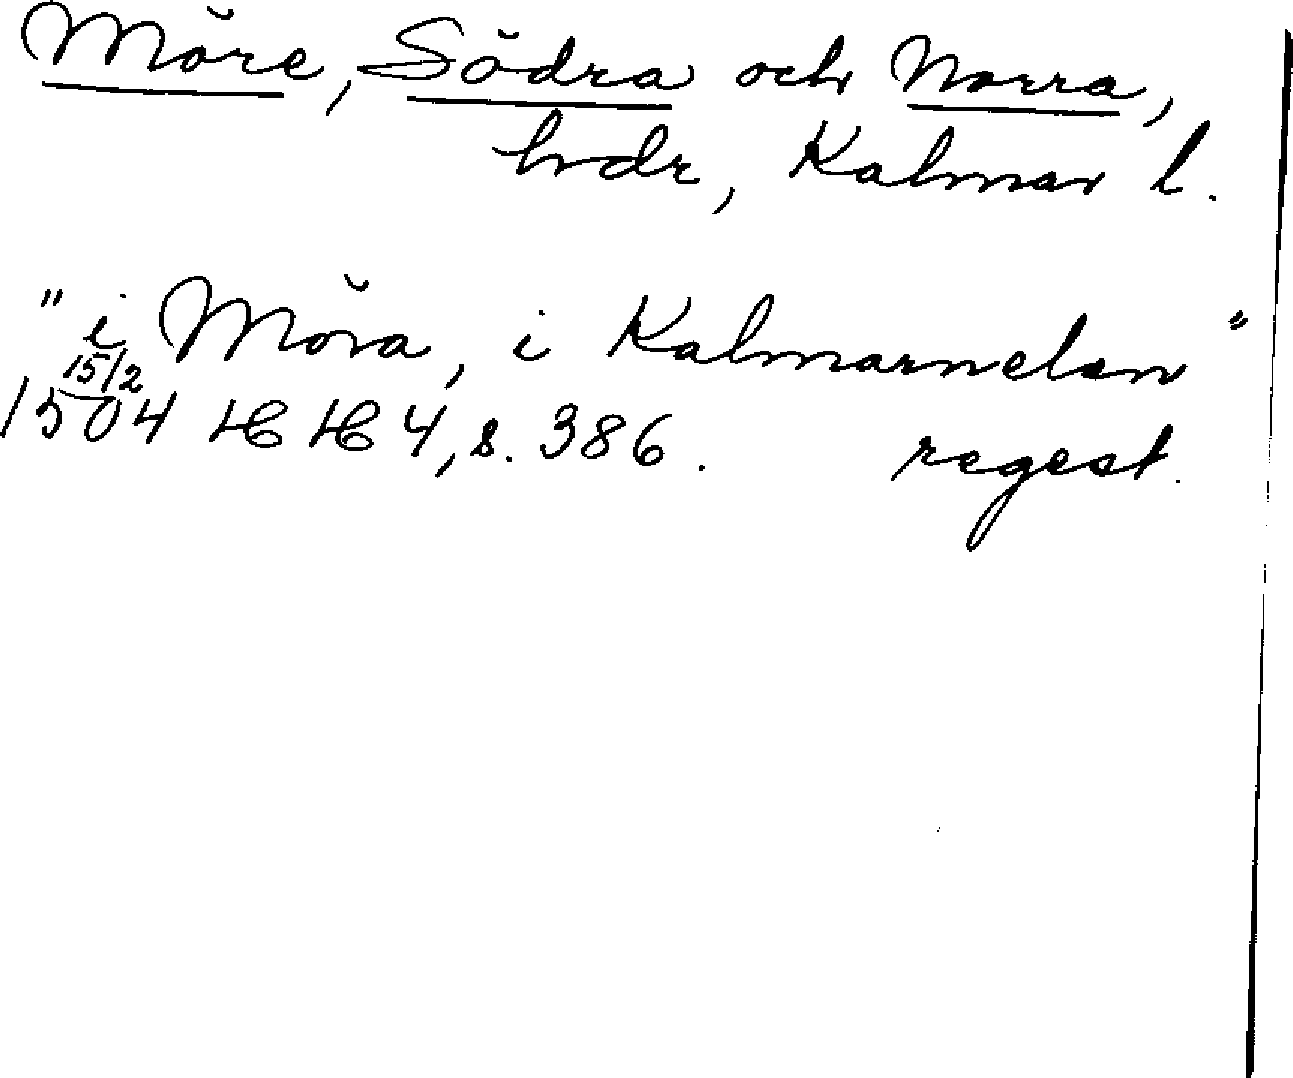 Möre, Södra och Norra,
hrdr, Kalmar l.
"i Möra, i Kalmarnelæn"
15/2
1504 HH 4, s. 386. regest.